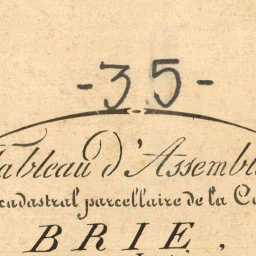 -35-
Tableau d'Assembl
cadastral parcellaire de la Co
BRIE,